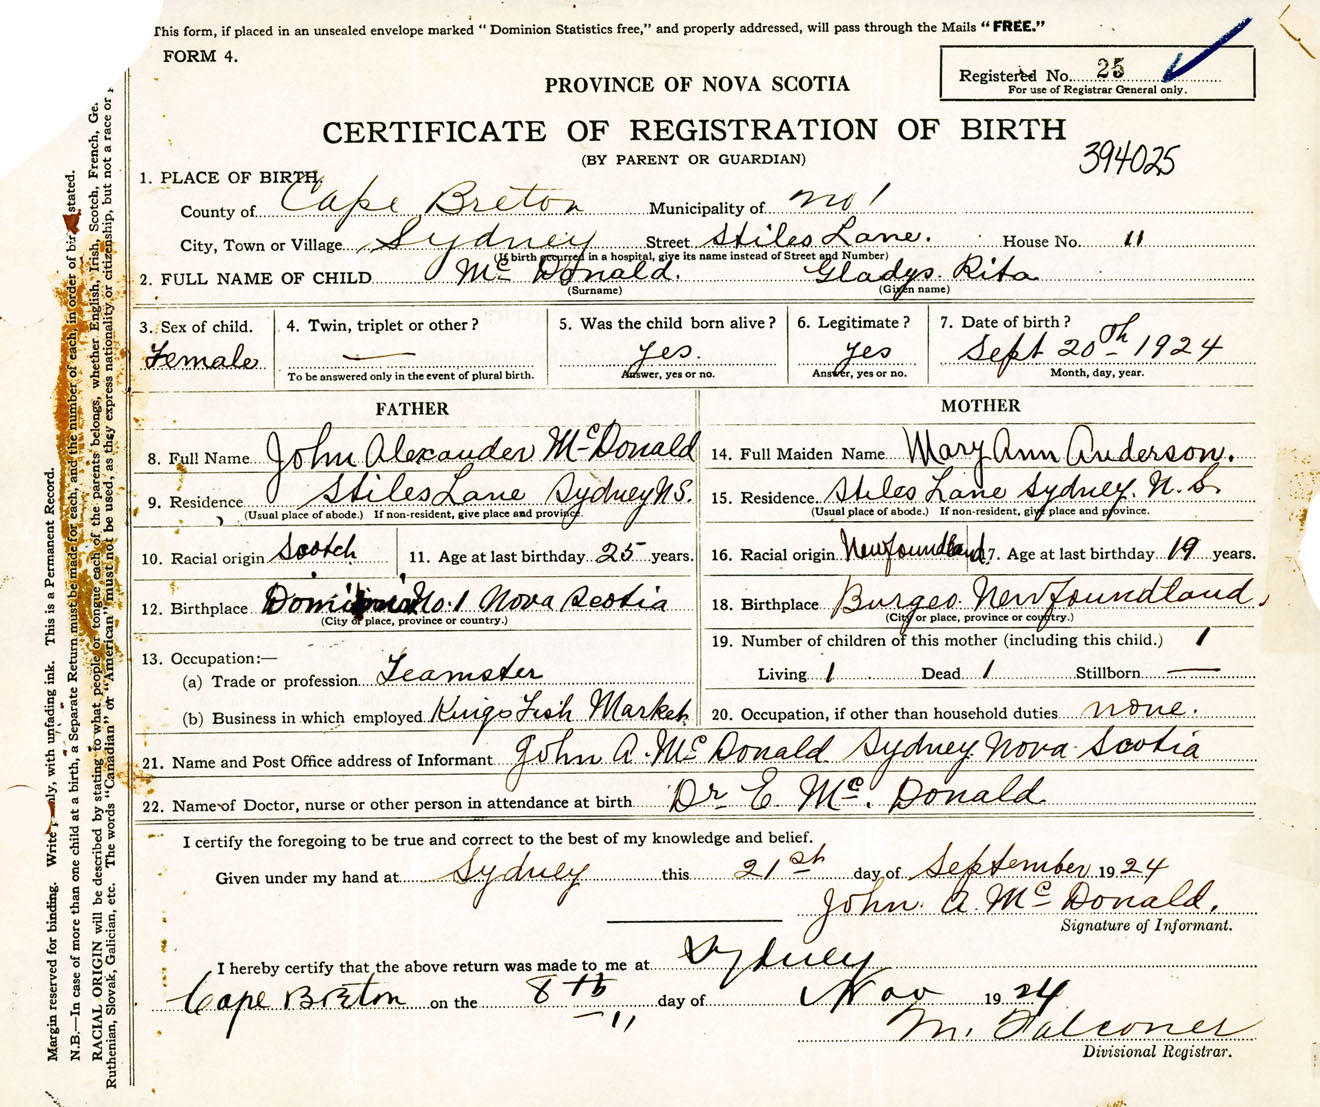 This form, if placed in an unsealed envelope marked "Dominion Statistics free," and properly addressed, will pass through the Mails "FREE."
FORM 4.
Registered No. 25
For use of Registrar General only.
PROVINCE OF NOVA SCOTIA
CERTIFICATE OF REGISTRATION OF BIRTH
(BY PARENT OR GUARDIAN)
394025
1. PLACE OF BIRTH,
County of Cape Breton Municipality of No 1
City, Town or Village Sydney Street Stiles Lane. House No. 11
(If birth occurred in a hospital, give its name instead of Street and Number)
2. FULL NAME OF CHILD Mc Donald. Gladys. Rita
(Surname) (Given name)
3. Sex of child. Female
4. Twin, triplet or other? —
To be answered only in the event of plural birth.
5. Was the child born alive? yes.
Answer, yes or no.
6. Legitimate? yes
Answer, yes or no.
7. Date of birth? Sept 20th 1924
Month, day, year.
FATHER
8. Full Name John Alexander McDonald
9. Residence Stiles Lane Sydney N.S.
(Usual place of abode.) If non-resident, give place and province.
10. Racial origin Scotch 11. Age at last birthday 25 years.
12. Birthplace No. 1 Nova Scotia
(City or place, province or country.)
13. Occupation:—
(a) Trade or profession Teamster
(b) Business in which employed Kings Fish Market
MOTHER
14. Full Maiden Name Mary Ann Anderson.
15. Residence Stiles Lane Sydney. N.S.
(Usual place of abode.) If non-resident, give place and province.
16. Racial origin Newfoundland 17. Age at last birthday 19 years.
18. Birthplace Burgeo. Newfoundland,
(City or place, province or country.)
19. Number of children of this mother (including this child.) 1
Living 1 Dead 1 Stillborn —
20. Occupation, if other than household duties none.
21. Name and Post Office address of Informant John A. Mc Donald Sydney Nova Scotia
22. Name of Doctor, nurse or other person in attendance at birth Dr E. Mc. Donald
I certify the foregoing to be true and correct to the best of my knowledge and belief.
Given under my hand at Sydney this 21st day of September 1924
John. A. Mc Donald.
Signature of Informant.
I hereby certify that the above return was made to me at Sydney
Cape Breton on the 8th day of Nov 1924
— 11
M. Falconer
Divisional Registrar.
Margin reserved for binding. Write only, with unfading ink. This is a Permanent Record.
N.B.—In case of more than one child at a birth, a Separate Return must be made for each, and the number of each, in order of birth stated.
RACIAL ORIGIN will be described by stating to what people or tongue each of the parents belongs, whether English, Irish, Scotch, French, Ge
Ruthenian, Slovak, Galician, etc. The words "Canadian" or "American" must not be used, as they express nationality or citizenship, but not a race or